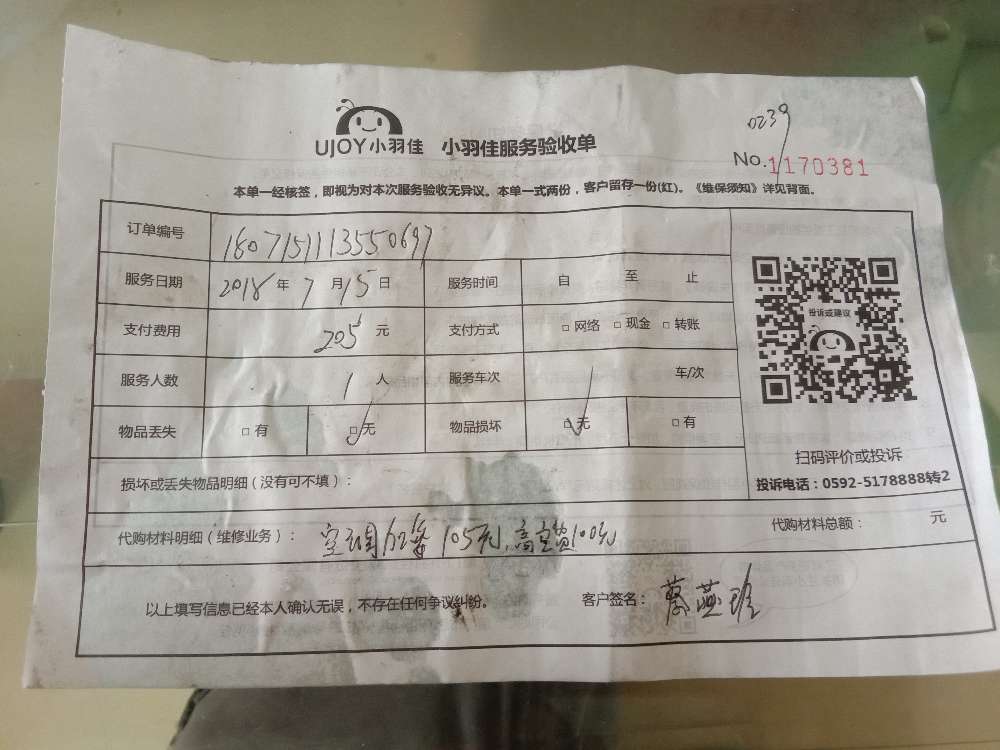 0239
UJOY小羽佳 小羽佳服务验收单
No.1170381
本单一经核签，即视为对本次服务验收无异议。本单一式两份，客户留存一份(红)。《维保须知》详见背面。
订单编号 1807151113550697
服务日期 2018年7月15日 服务时间 自 至 止
投诉或建议
支付费用 205元 支付方式 □网络 □现金 □转账
服务人数 1人 服务车次 车/次
物品丢失 □有 ☑无 物品损坏 ☑无 □有
扫码评价或投诉
损坏或丢失物品明细（没有可不填）：
投诉电话：0592-5178888转2
代购材料明细（维修业务）： 空调加 105元，高空费100元 代购材料总额： 元
以上填写信息已经本人确认无误，不存在任何争议纠纷。 客户签名： 燕